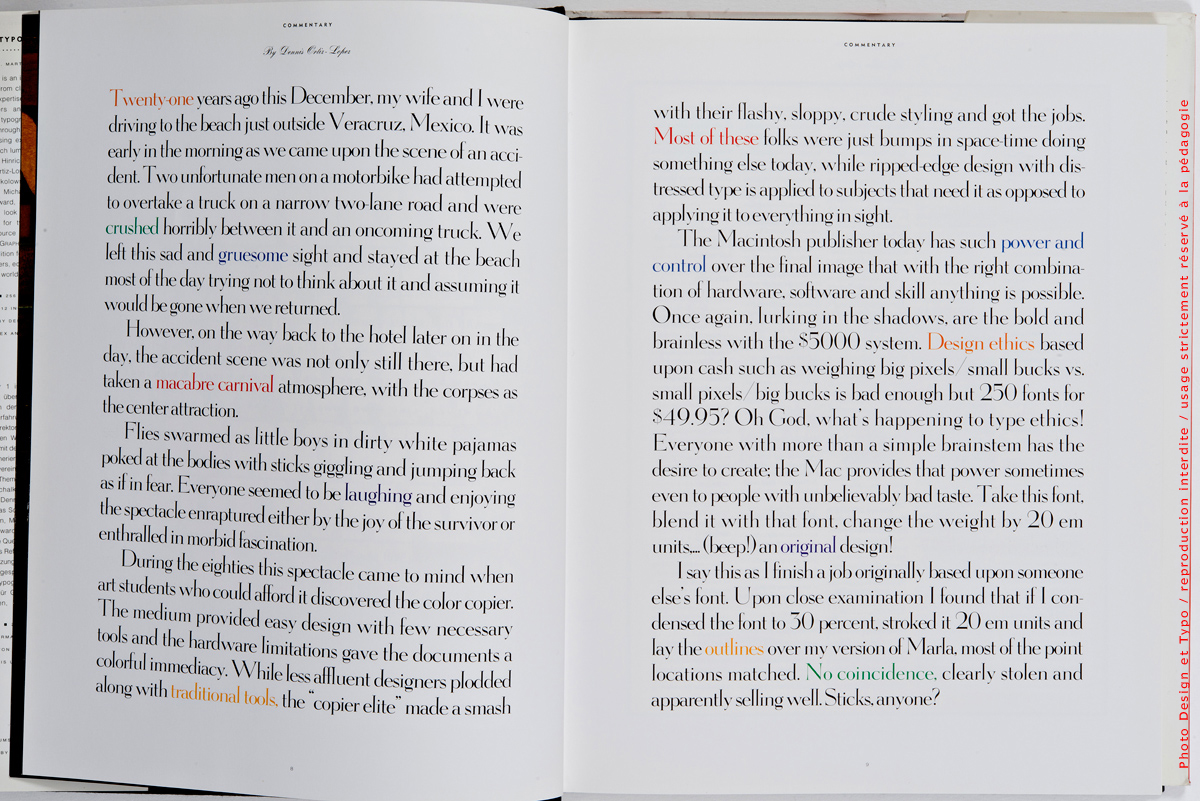 COMMENTARY
By Dennis Ortiz-Lopez
Twenty-one years ago this December, my wife and I were
driving to the beach just outside Veracruz, Mexico. It was
early in the morning as we came upon the scene of an acci-
dent. Two unfortunate men on a motorbike had attempted
to overtake a truck on a narrow two-lane road and were
crushed horribly between it and an oncoming truck. We
left this sad and gruesome sight and stayed at the beach
most of the day trying not to think about it and assuming it
would be gone when we returned.
However, on the way back to the hotel later on in the
day, the accident scene was not only still there, but had
taken a macabre carnival atmosphere, with the corpses as
the center attraction.
Flies swarmed as little boys in dirty white pajamas
poked at the bodies with sticks giggling and jumping back
as if in fear. Everyone seemed to be laughing and enjoying
the spectacle enraptured either by the joy of the survivor or
enthralled in morbid fascination.
During the eighties this spectacle came to mind when
art students who could afford it discovered the color copier.
The medium provided easy design with few necessary
tools and the hardware limitations gave the documents a
colorful immediacy. While less affluent designers plodded
along with traditional tools, the "copier elite" made a smash
8
COMMENTARY
with their flashy, sloppy, crude styling and got the jobs.
Most of these folks were just bumps in space-time doing
something else today, while ripped-edge design with dis-
tressed type is applied to subjects that need it as opposed to
applying it to everything in sight.
The Macintosh publisher today has such power and
control over the final image that with the right combina-
tion of hardware, software and skill anything is possible.
Once again, lurking in the shadows, are the bold and
brainless with the $5000 system. Design ethics based
upon cash such as weighing big pixels/small bucks vs.
small pixels/big bucks is bad enough but 250 fonts for
$49.95? Oh God, what's happening to type ethics!
Everyone with more than a simple brainstem has the
desire to create; the Mac provides that power sometimes
even to people with unbelievably bad taste. Take this font,
blend it with that font, change the weight by 20 em
units,... (beep!) an original design!
I say this as I finish a job originally based upon someone
else's font. Upon close examination I found that if I con-
densed the font to 30 percent, stroked it 20 em units and
lay the outlines over my version of Marla, most of the point
locations matched. No coincidence, clearly stolen and
apparently selling well. Sticks, anyone?
9
Photo Design et Typo / reproduction interdite / usage strictement réservé à la pédagogie